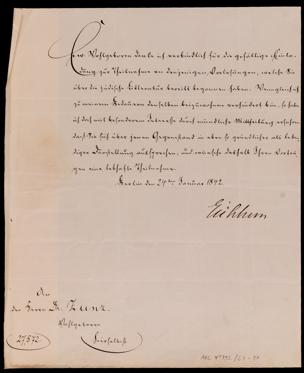 Ew. Wohlgeboren danke ich verbindlich für die gefällige Einla-
dung zur Theilnahme an denjenigen Vorlesungen, welche Sie
über die jüdische Litteratur bereits begonnen haben. Wenngleich ich
zu meinem Bedauern denselben beizuwohnen verhindert bin, so habe
ich doch mit besonderem Interesse durch mündliche Mittheilung erfahren
daß Sie sich über jenen Gegenstand in eben so gründlicher als leben-
diger Darstellung aussprechen, und wünsche deshalb Ihren Vorträ-
gen eine lebhafte Theilnahme.
Berlin den 29ten Januar 1842.
Eichhorn
An
den Herrn Dr. Zunz
Wohlgeboren
hierselbst
27,572